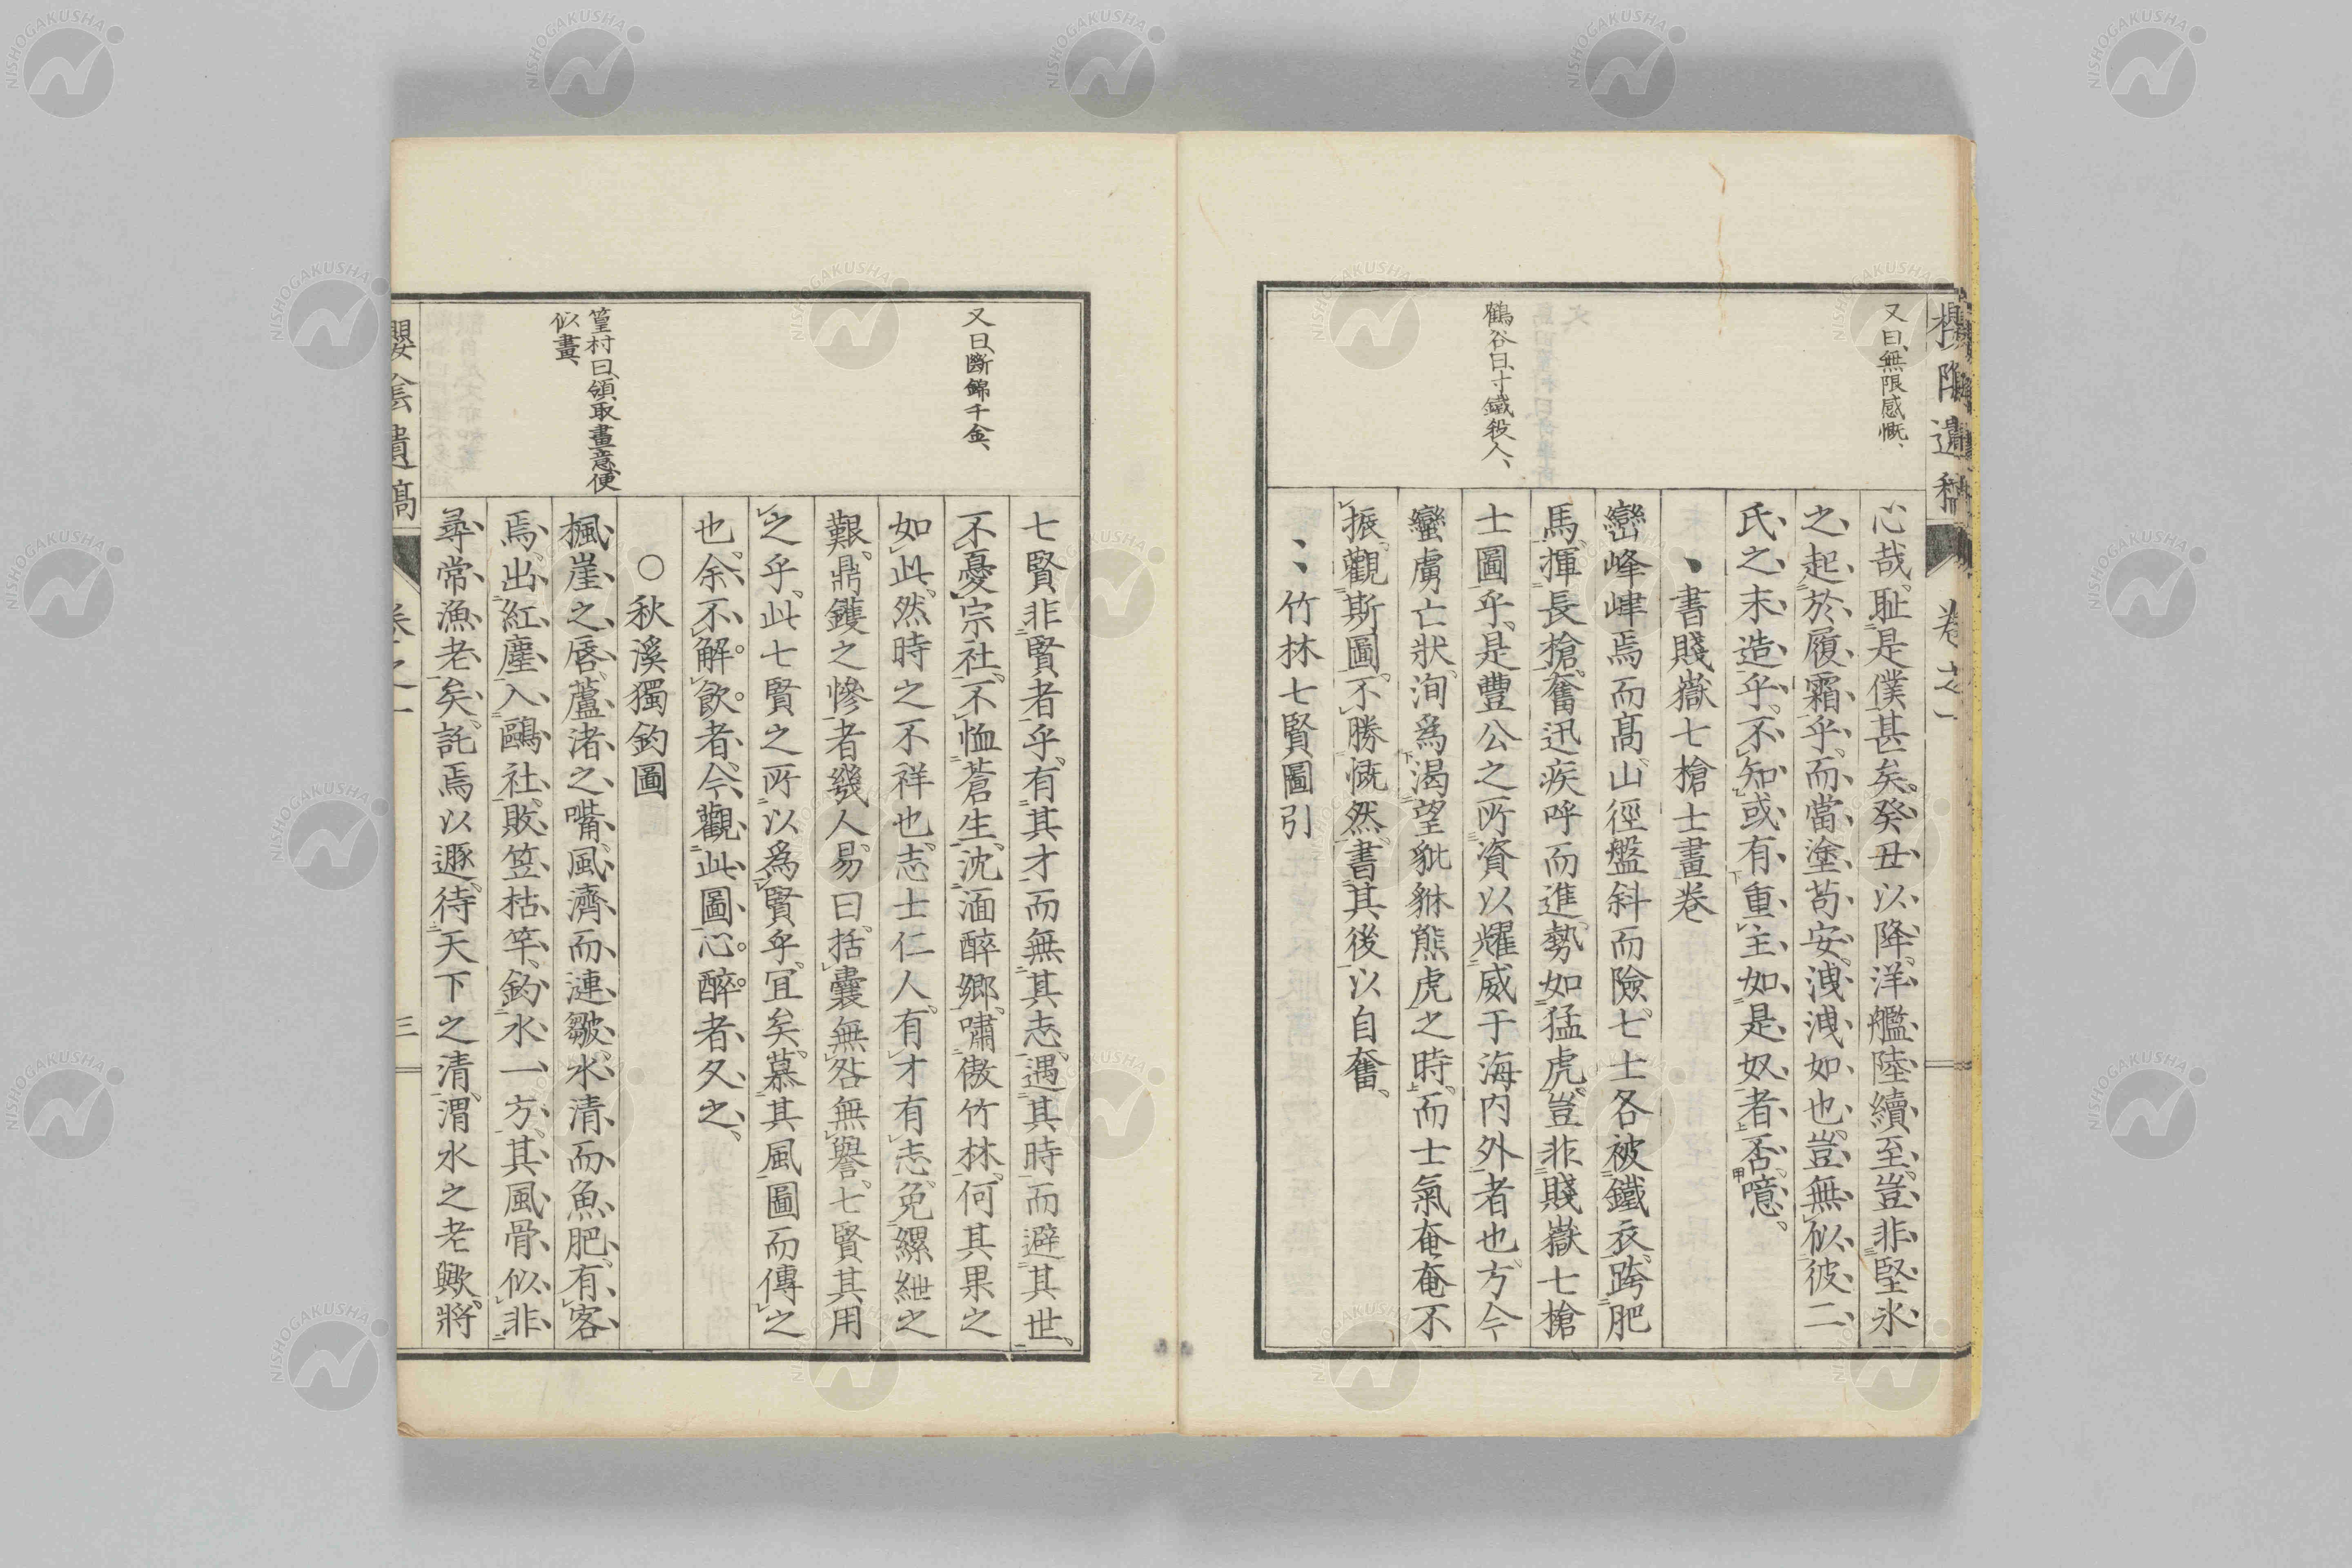 櫻陰遺稿 卷之一
又曰、無限感慨、
心哉。耻是僕甚矣。癸丑以降。洋艦陸續至。豈非堅氷
之起於履霜乎。而當塗苟安。洩洩如也。豈無似彼二
氏之末造乎。不知或有重主如是奴者否。噫。
書賤嶽七槍士畫卷
鶴谷曰、寸鐵殺人、
巒峰峍焉而高。山徑盤斜而險。七士各被鐵衣。跨肥
馬。揮長槍。奮迅疾呼而進。勢如猛虎。豈非賤嶽七槍
士圖乎。是豐公之所資以耀威于海內外者也。方今
蠻虜亡狀。洶為渴望豼貅熊虎之時。而士氣奄奄不
振。觀斯圖。不勝慨然。書其後以自奮。
竹林七賢圖引
七賢非賢者乎。有其才而無其志。遇其時而避其世。
又曰、斷錦千金、
不憂宗社。不恤蒼生。沈湎醉鄉。嘯傲竹林。何其果之
如此。然時之不祥也。志士仁人。有才有志。免縲紲之
艱。鼎鑊之慘者幾人。易曰。括囊無咎無譽。七賢其用
之乎。此七賢之所以為賢乎。宜矣。慕其風圖而傳之
也。余不解飲者。今觀此圖。心醉者久之。
○秋溪獨釣圖
篁村曰、領取畫意、便
似畫、
楓崖之脣。蘆渚之嘴。風濟而漣皺。水清而魚肥。有客
焉。出紅塵。入鷗社。敗笠枯竿。釣水一方。其風骨似非
尋常漁老矣。託焉以遯。待天下之清。渭水之老歟。將
櫻陰遺稿 卷之一 三